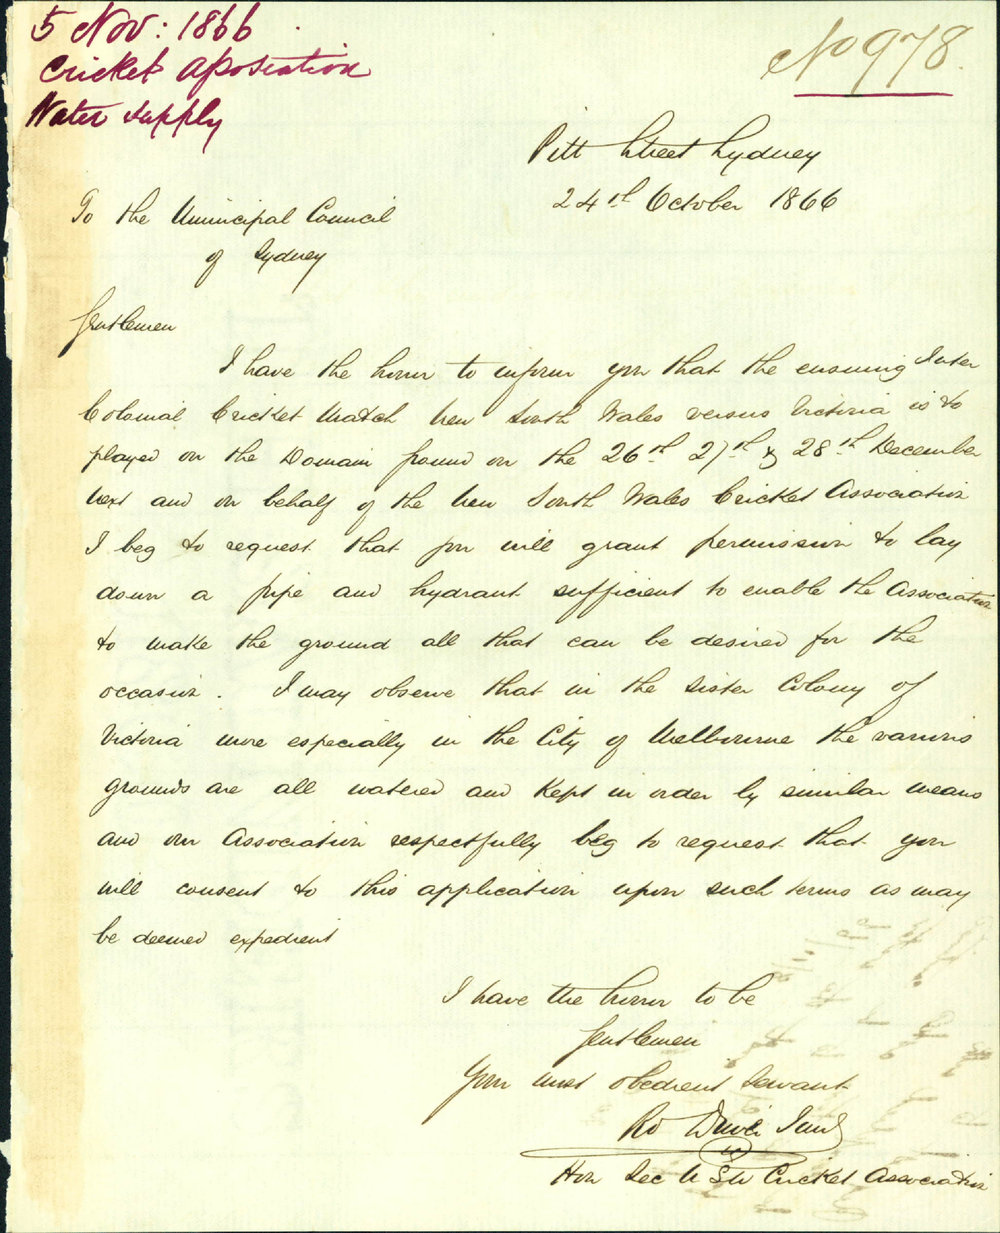 5 Nov: 1866
Cricket Association
Water Supply
No 978.
Pitt Street Sydney
24th October 1866
To the Municipal Council
of Sydney
Gentlemen
I have the honor to inform you that the ensuing Inter
Colonial Cricket Match New South Wales versus Victoria is to
played on the Domain ground on the 26th 27th & 28th December
next and on behalf of the New South Wales Cricket Association
I beg to request that you will grant permission to lay
down a pipe and hydrant sufficient to enable the Association
to make the ground all that can be desired for the
occasion. I may observe that in the sister Colony of
Victoria more especially in the City of Melbourne the various
grounds are all watered and kept in order by similar means
and our Association respectfully beg to request that you
will consent to this application upon such terms as may
be deemed expedient
I have the honor to be
Gentlemen
Your most obedient Servant
Hon Sec N S W Cricket Association